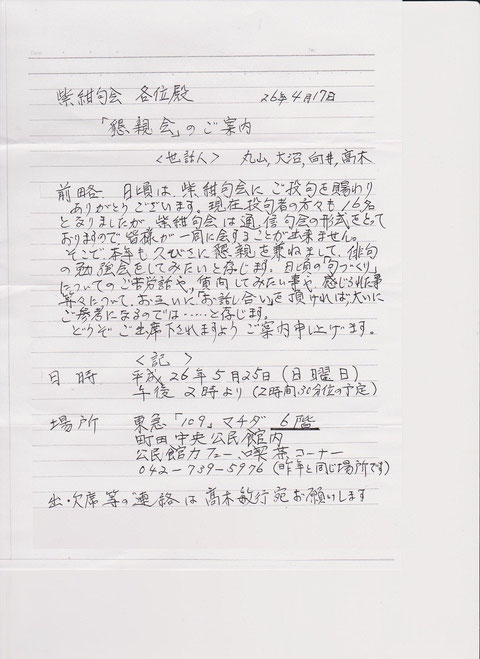 紫紺句会 各位殿 26年4月17日
「懇親会」のご案内
<世話人> 丸山,大沼,向井,髙木
前略 日頃は紫紺句会にご投句を賜わり
ありがとうございます。現在投句者の方々も16名
となりましたが紫紺句会は通信句会の形式をとって
おりますので皆様が一同に会することが出来ません。
そこで本年も久びさに懇親を兼ねまして、俳句
の勉強会をしてみたいと存じます。日頃の「句づくり」
についてのご苦労話や、質問してみたい事や、感じられた事
等々について、お互いに「お話し合い」を頂ければ、大いに
ご参考になるのでは……と存じます。
どうぞご出席下されますようご案内申し上げます。
<記>
日時 平成26年5月25日(日曜日)
午後2時より(2時間30分位の予定)
場所 東急「109」マチダ 6階
町田中央公民館内
公民館カフェー、喫茶コーナー
042-739-5976(昨年と同じ場所です)
出・欠席等のご連絡は髙木敏行宛お願いします